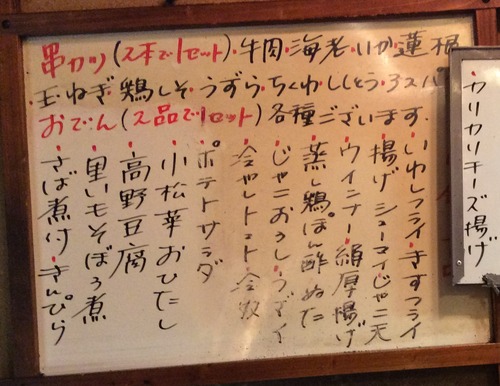 串カツ(2本で1セット)・牛肉・海老・いか・蓮根
・玉ねぎ・鶏しそ・うずら・ちくわ・ししとう・アスパ
おでん(2品で1セット)各種ございます。
・いわしフライ・きすフライ
・揚げシューマイ・じゃこ天
・ウインナー・絹厚揚げ
・蒸し鶏ぽん酢・ぬた
・じゃこおろし・うざく
・冷やしトマト・冷奴
・ポテトサラダ
・小松菜おひたし
・高野豆腐
・里いもそぼろ煮
・さば煮付・きんぴら
・カリカリチーズ揚げ